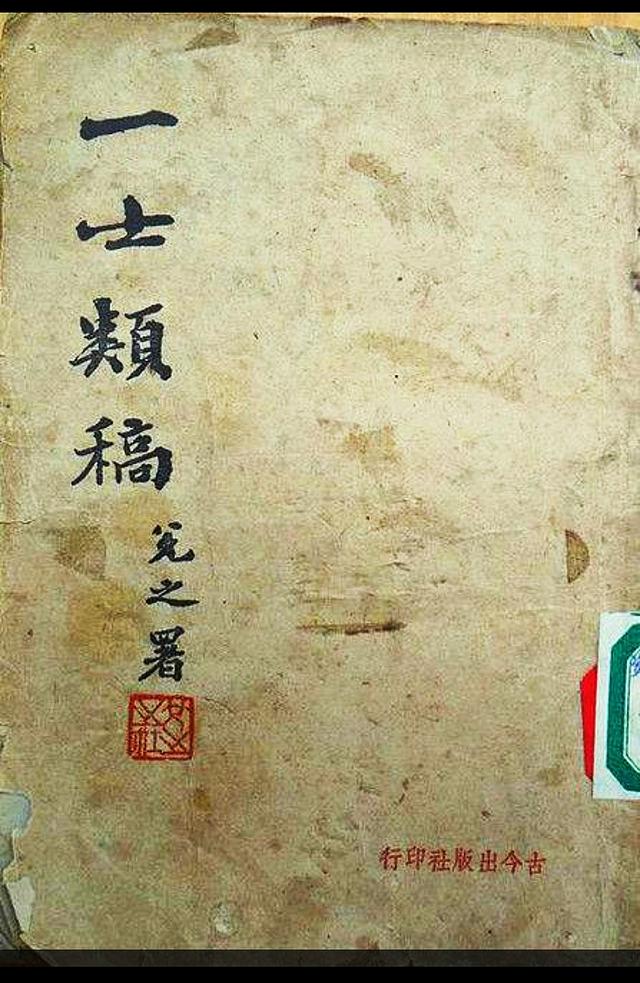 一士類稿
兌之署
古今出版社印行